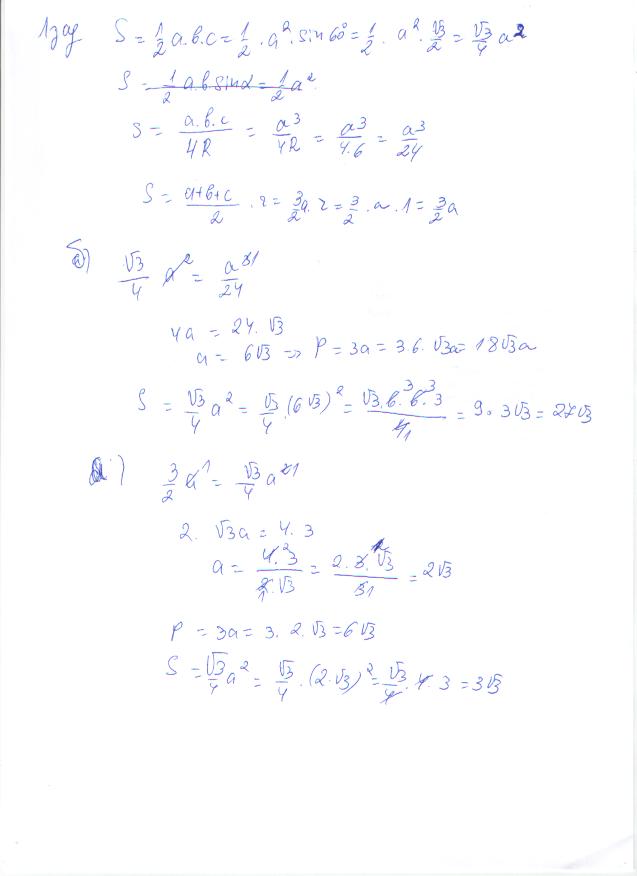 1 зад S = 1/2 a.b.c = 1/2 . a² . sin 60° = 1/2 . a² . √3/2 = √3/4 a²
S = 1/2 a.b sinα = 1/2 a²
S = a.b.c/4R = a³/4R = a³/4.6 = a³/24
S = a+b+c/2 . r = 3/2 a . r = 3/2 . a . 1 = 3/2 a
б) √3/4 a² = a³1/24
4a = 24.√3
a = 6√3 => P = 3a = 3.6.√3a = 18√3a
S = √3/4 a² = √3/4 . (6√3)² = √3.6³.6³.3/4 1 = 9 . 3√3 = 27√3
) 3/2 a¹ = √3/4 a²1
2. √3a = 4.3
a = 4.²3/2 1.√3 = 2.3.√3/3 1 = 2√3
P = 3a = 3.2.√3 = 6√3
S = √3/4 a² = √3/4 . (2.√3)² = √3/4 . 4.3 = 3√3